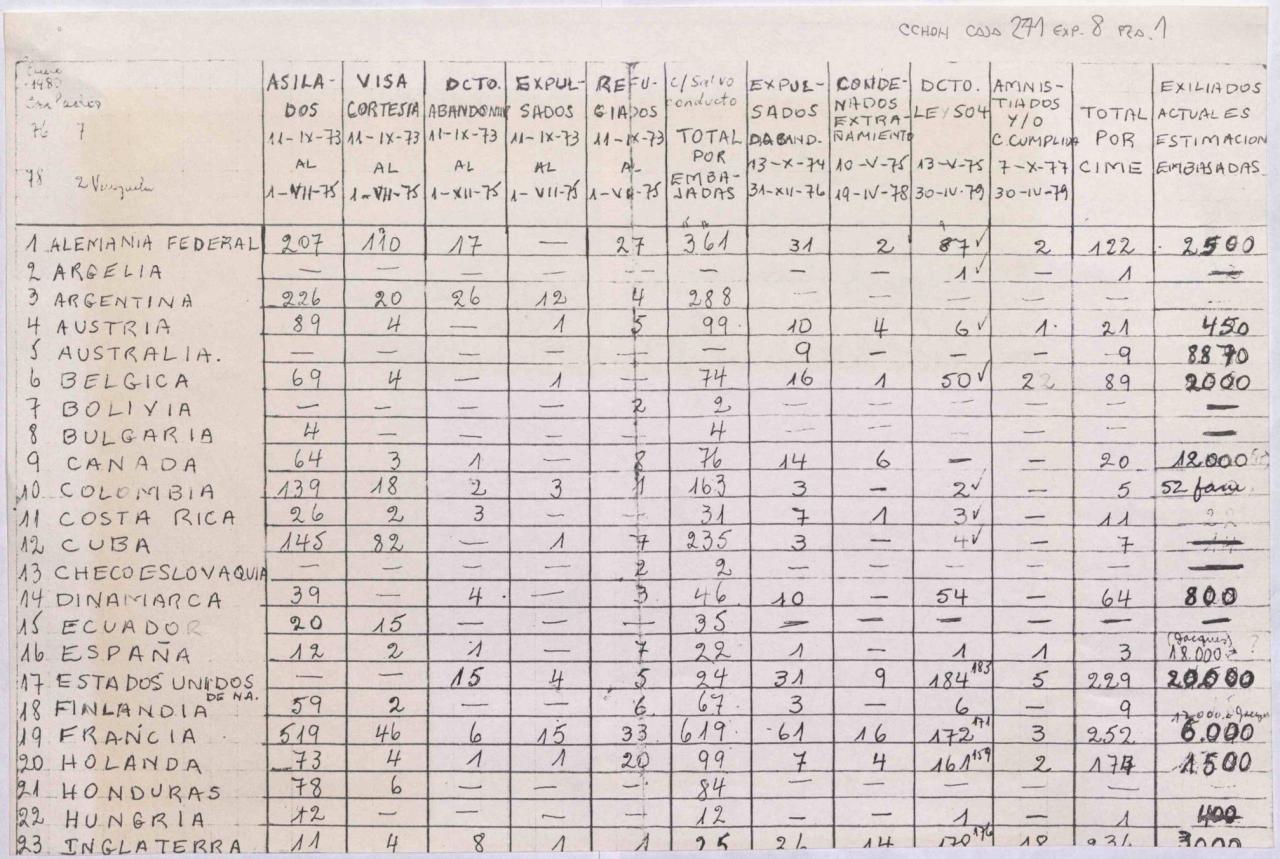 CCHDH CAJA 271 EXP. 8 PZA. 1
Enero
76 7
78 2 Venezuela
ASILADOS 11-IX-73 AL 1-VII-75 | VISA CORTESIA 11-IX-73 AL 1-VII-75 | DCTO. ABANDONAR 11-IX-73 AL 1-XII-75 | EXPULSADOS 11-IX-73 AL 1-VII-75 | REFUGIADOS 11-IX-73 AL 1-VII-75 | c/Salvo conducto TOTAL POR EMBAJADAS | EXPULSADOS D.ABAND. 13-X-74 31-XII-76 | CONDENADOS EXTRAÑAMIENTO 10-V-75 19-IV-78 | DCTO. LEY 504 13-V-75 30-IV-79 | AMNISTIADOS Y/O C.CUMPLIDA 7-X-77 30-IV-79 | TOTAL POR CIME | EXILIADOS ACTUALES ESTIMACION EMBAJADAS
1 ALEMANIA FEDERAL 207 110 17 — 27 361 31 2 87✓ 2 122 2500
2 ARGELIA — — — — — — — — 1✓ — 1 —
3 ARGENTINA 226 20 26 12 4 288 — — — — — —
4 AUSTRIA 89 4 — 1 5 99 10 4 6✓ 1 21 450
5 AUSTRALIA. — — — — — — 9 — — — 9 8870
6 BELGICA 69 4 — 1 — 74 16 1 50✓ 22 89 2000
7 BOLIVIA — — — — 2 2 — — — — — —
8 BULGARIA 4 — — — — 4 — — — — — —
9 CANADA 64 3 1 — 8 76 14 6 — — 20 12.000
10 COLOMBIA 139 18 2 3 1 163 3 — 2✓ — 5 52 fam.
11 COSTA RICA 26 2 3 — — 31 7 1 3✓ — 11 22
12 CUBA 145 82 — 1 7 235 3 — 4✓ — 7
13 CHECOESLOVAQUIA — — — — 2 2 — — — — — —
14 DINAMARCA 39 — 4 — 3 46 10 — 54 — 64 800
15 ECUADOR 20 15 — — — 35 — — — — — —
16 ESPAÑA 12 2 1 — 7 22 1 — 1 1 3 (Jacques) 18.000 ?
17 ESTADOS UNIDOS DE NA. — — 15 4 5 24 31 9 184 183 5 229 20.000
18 FINLANDIA 59 2 — — 6 67 3 — 6 — 9
19 FRANCIA 519 46 6 15 33 619 61 16 172 171 3 252 6.000
20 HOLANDA 73 4 1 1 20 99 7 4 161 159 2 174 1500
21 HONDURAS 78 6 — — — 84 — — — — —
22 HUNGRIA 12 — — — — 12 — — 1 — 1 400
23 INGLATERRA 11 4 8 1 1 25 26 14 176 18 3000